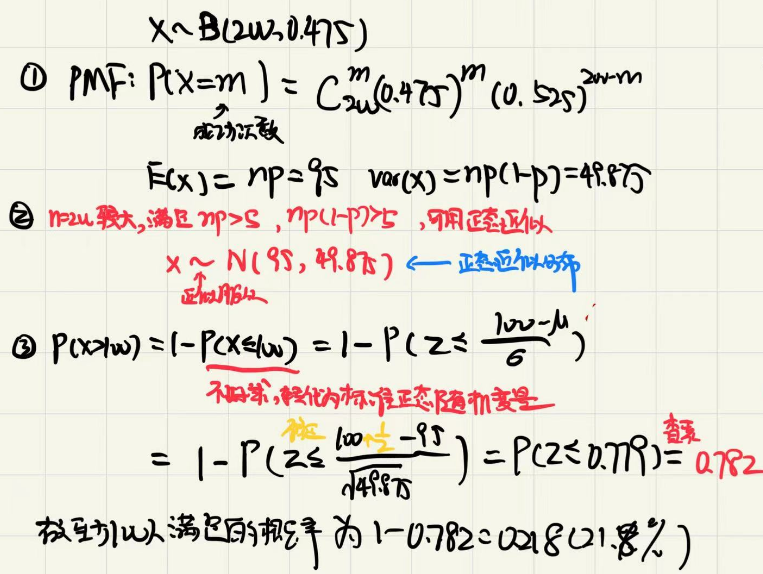 X~B(200,0.475)
① PMF: P(X=m) = C₂₀₀^m (0.475)^m (0.525)^{200-m}
成功次数
E(x) = np=95 var(x)=np(1-p)=49.875
② n=200较大,满足np>5, np(1-p)>5,可用正态近似
X ~ N(95, 49.875) ← 正态近似分布
近似服从
③ P(X>100) = 1-P(X≤100) = 1-P(Z≤ (100-μ)/σ)
不好算,转化为标准正态随机变量
= 1-P(Z≤ (100+1/2-95)/√49.875) = P(Z≤0.779) = 0.782
修正
查表
故至少100人满足的概率为1-0.782=0.218(21.8%)